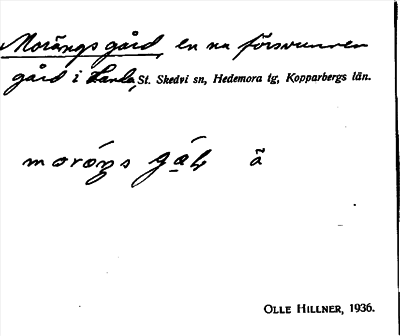 Morängs gård, en nu försvunnen
gård i St. Skedvi sn, Hedemora tg, Kopparbergs län.
OLLE HILLNER, 1936.